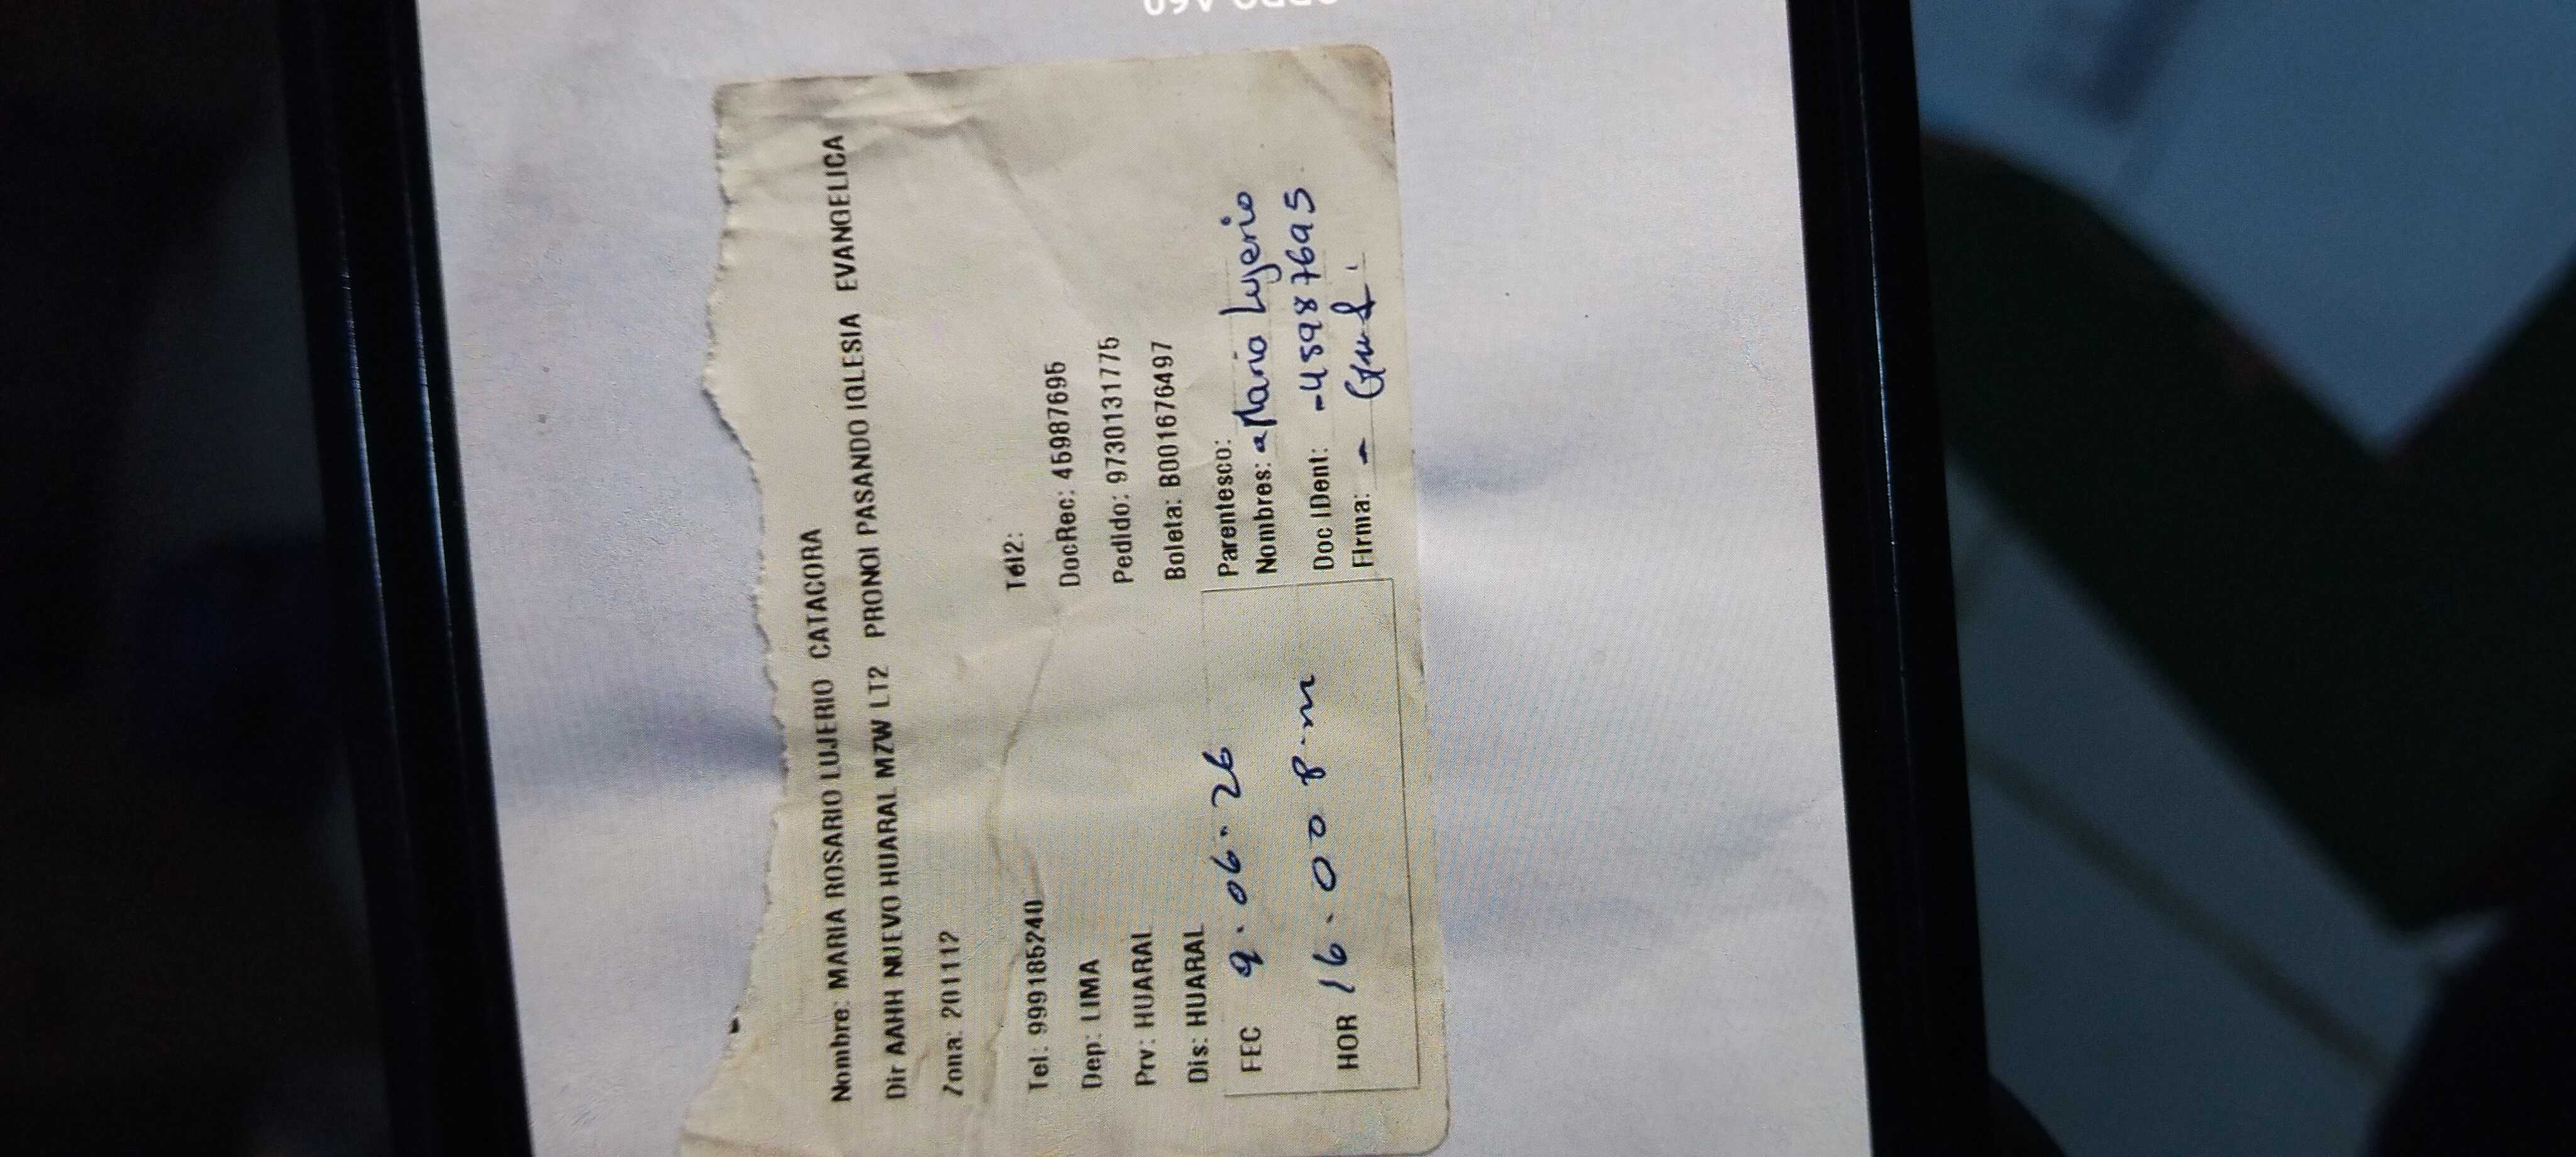 Nombre: MARIA ROSARIO LUJERIO CATACORA
Dir AAHH NUEVO HUARAL MZW LT2 PRONOI PASANDO IGLESIA EVANGELICA
Zona: 201112
Tel: 999185240 Tel2:
Dep: LIMA DocRec: 45987695
Prv: HUARAL Pedido: 97301317​75
Dis: HUARAL Boleta: B001676497
FEC 9.06.26 Parentesco:
Nombres: Maria Lujerio
HOR 16.00 p.m Doc IDent: -45987695
Firma: